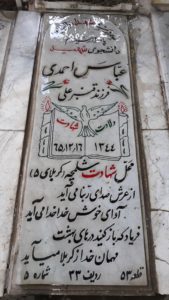 دانشجوی شهید
عباس احمدی
فرزند قنبر علی
ولادت شهادت
۱۳۴۴ ۶۵/۱۲/۱۶
محل شهادت شلمچه (کربلای ۵)
از عرش صدای ربنا می آید
آوای خوش خدا خدا می آید
فریاد که باز کنید درهای بهشت
مهمان خدا ز کربلا می آید
قطعه ۵۳ ردیف ۳۳ شماره ۵